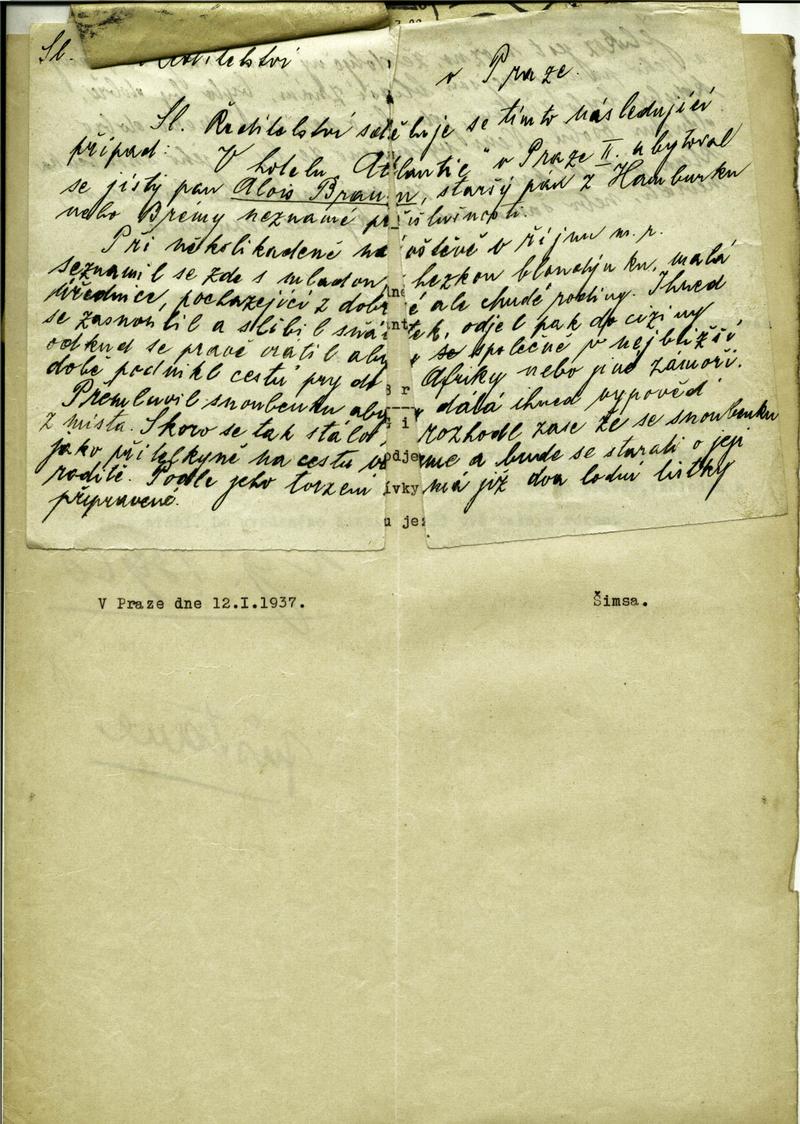 Sl. Ředitelství
v Praze.
Sl. Ředitelství sděluje se tímto následující
případ: V hotelu „Atlantic" v Praze II. ubytoval
se jistý pan Alois Braun, starší pán z Hamburku
nebo Brémy neznámé příslušnosti.
Při několikadenní návštěvě v říjnu m. r.
seznámil se zde s mladou, hezkou blondýnkou, malá
úřednice, pocházející z dobré ale chudé rodiny. Ihned
se zasnoubil a slíbil sňatek, odjel pak do ciziny
odkud se právě vrátil aby se společně v nejbližší
době podnikl cestu prý do Afriky nebo jiné zámoří.
Přemluvil snoubenku aby dála ihned výpověď
z místa. Skoro se tak stálo, rozhodl zase že se snoubenku
jako přítelkyně na cestu vezme a bude se starati o její
rodiče. Podle jeho tvrzení má již dva lodní lístky
připravené.
V Praze dne 12.I.1937. Šimsa.